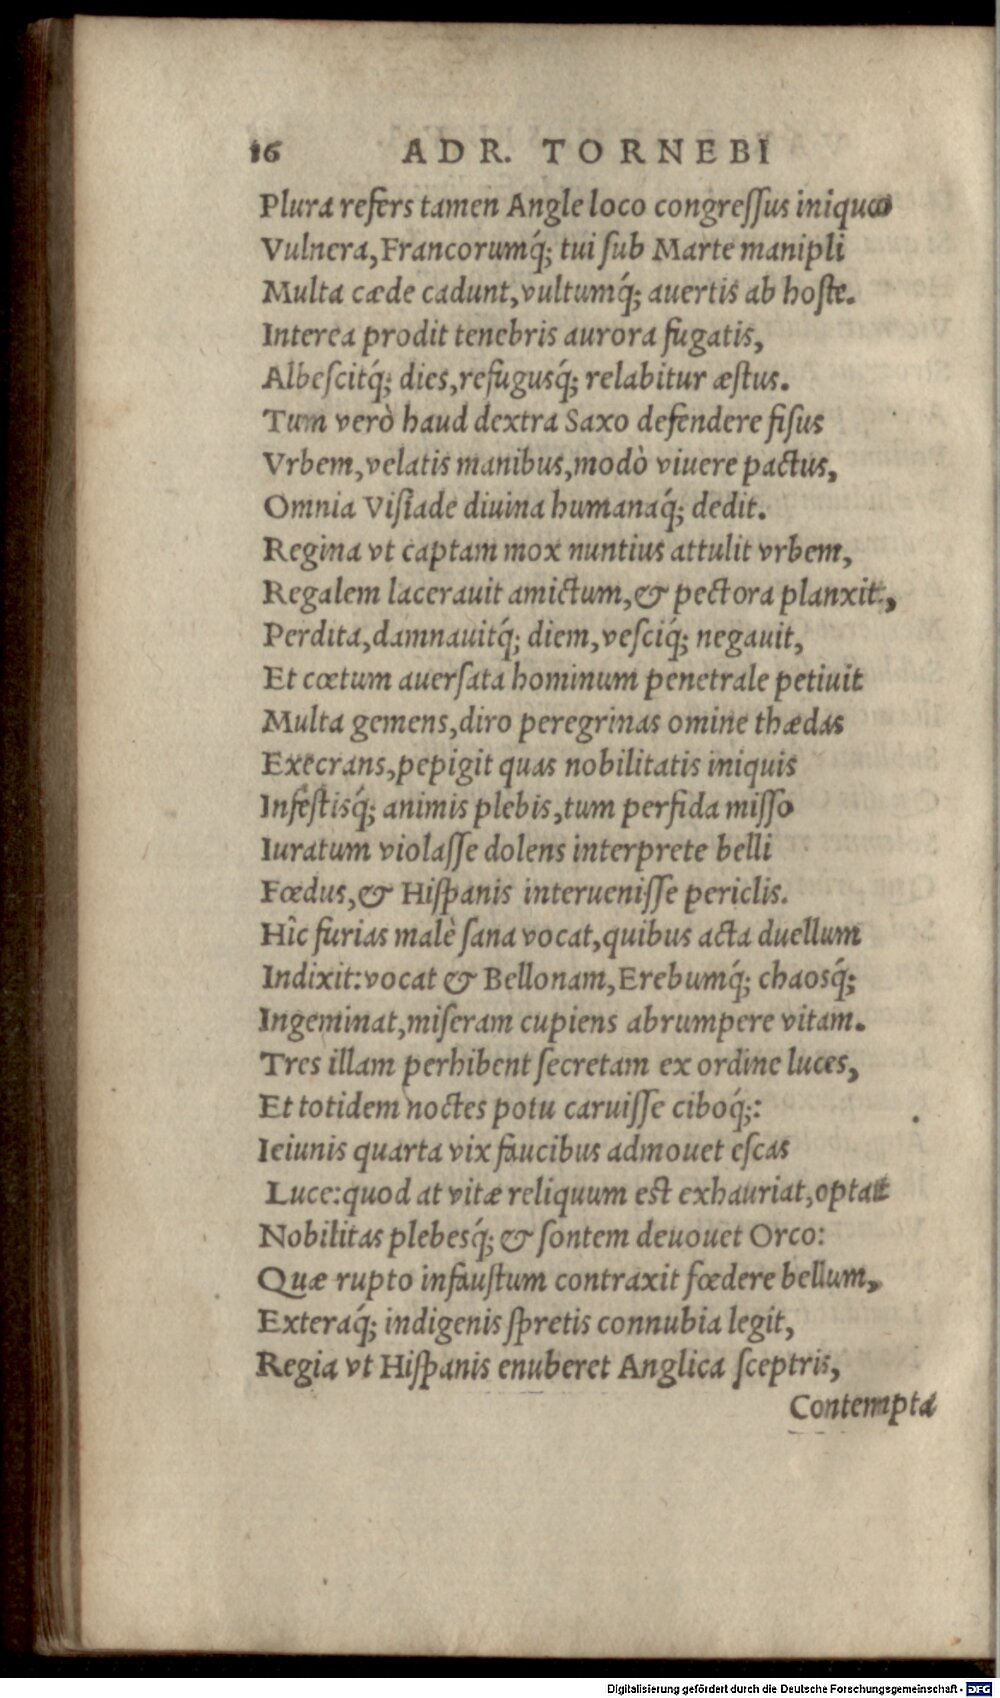 16 ADR. TORNEBI
Plura refers tamen Angle loco congreſſus iniquo
Vulnera, Francorumq́; tui ſub Marte manipli
Multa cæde cadunt, vultumq́; auertis ab hoſte.
Interea prodit tenebris aurora fugatis,
Albeſcitq́; dies, refugusq́; relabitur æſtus.
Tum verò haud dextra Saxo defendere fiſus
Vrbem, velatis manibus, modò viuere pactus,
Omnia Viſiade diuina humanaq́; dedit.
Regina vt captam mox nuntius attulit vrbem,
Regalem lacerauit amictum, & pectora planxit,
Perdita, damnauitq́; diem, veſciq́; negauit,
Et cœtum auerſata hominum penetrale petiuit
Multa gemens, diro peregrinas omine thædas
Execrans, pepigit quas nobilitatis iniquis
Infeſtisq́; animis plebis, tum perfida miſſo
Iuratum violaſſe dolens interprete belli
Fœdus, & Hiſpanis interueniſſe periclis.
Hîc furias malè ſana vocat, quibus acta duellum
Indixit: vocat & Bellonam, Erebumq́; chaosq́;
Ingeminat, miſeram cupiens abrumpere vitam.
Tres illam perhibent ſecretam ex ordine luces,
Et totidem noctes potu caruiſſe ciboq́;:
Ieiunis quarta vix faucibus admouet eſcas
Luce: quod at vitæ reliquum est exhauriat, optat
Nobilitas plebesq́; & ſontem deuouet Orco:
Quæ rupto infauſtum contraxit fœdere bellum,
Exteraq́; indigenis ſpretis connubia legit,
Regia vt Hiſpanis enuberet Anglica ſceptris,
Contempta
Digitalisierung gefördert durch die Deutsche Forschungsgemeinschaft - DFG